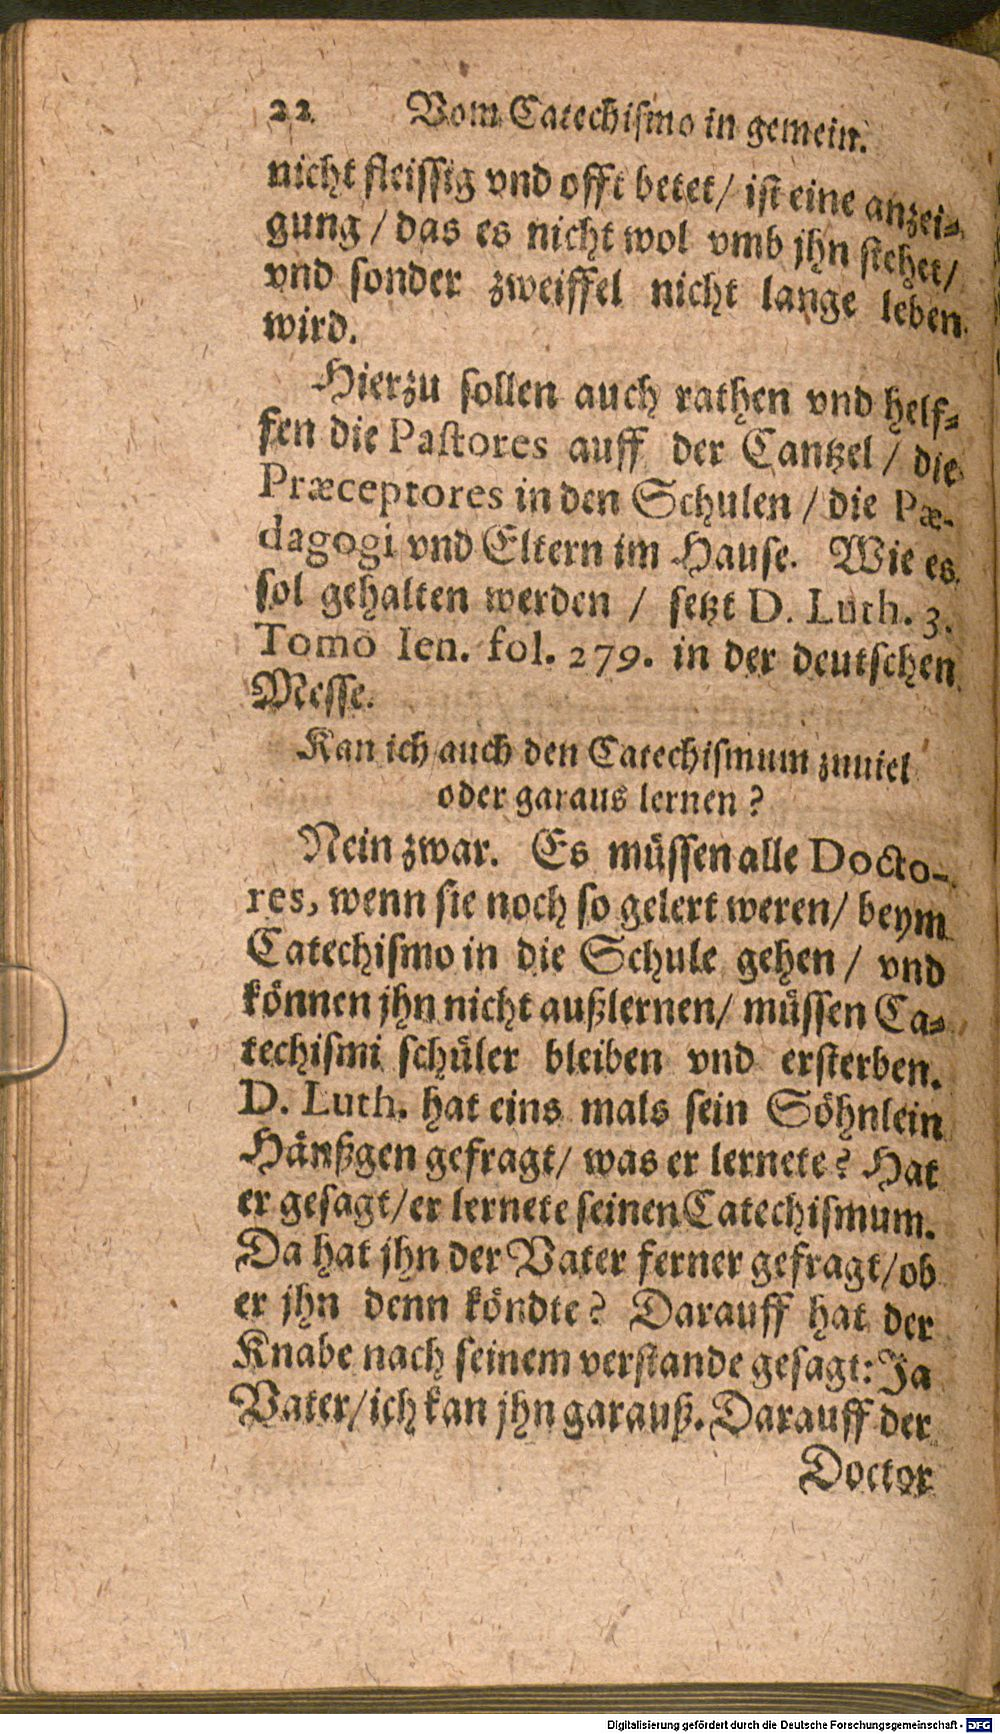 22 Vom Catechiſmo in gemein.
nicht fleiſſig vnd offt betet/ iſt eine anzei⸗
gung / das es nicht wol vmb jhn ſtehet/
vnd ſonder zweiffel nicht lange leben
wird.
Hierzu ſollen auch rathen vnd helf⸗
fen die Paſtores auff der Cantzel / die
Præceptores in den Schulen / die Pæ-
dagogi vnd Eltern im Hauſe. Wie es
ſol gehalten werden / ſetzt D. Luth. 3.
Tomo Ien. fol. 279. in der deutſchen
Meſſe.
Kan ich auch den Catechiſmum zuuiel
oder garaus lernen?
Nein zwar. Es müſſen alle Docto-
res, wenn ſie noch ſo gelert weren/ beym
Catechiſmo in die Schule gehen / vnd
können jhn nicht außlernen/ müſſen Ca⸗
techiſmi ſchüler bleiben vnd erſterben.
D. Luth. hat eins mals ſein Söhnlein
Hänßgen gefragt/ was er lernete? Hat
er geſagt/ er lernete ſeinen Catechiſmum.
Da hat jhn der Vater ferner gefragt/ ob
er jhn denn köndte? Darauff hat der
Knabe nach ſeinem verſtande geſagt: Ja
Vater/ ich kan jhn garauß. Darauff der
Doctor
Digitalisierung gefördert durch die Deutsche Forschungsgemeinschaft - DFG